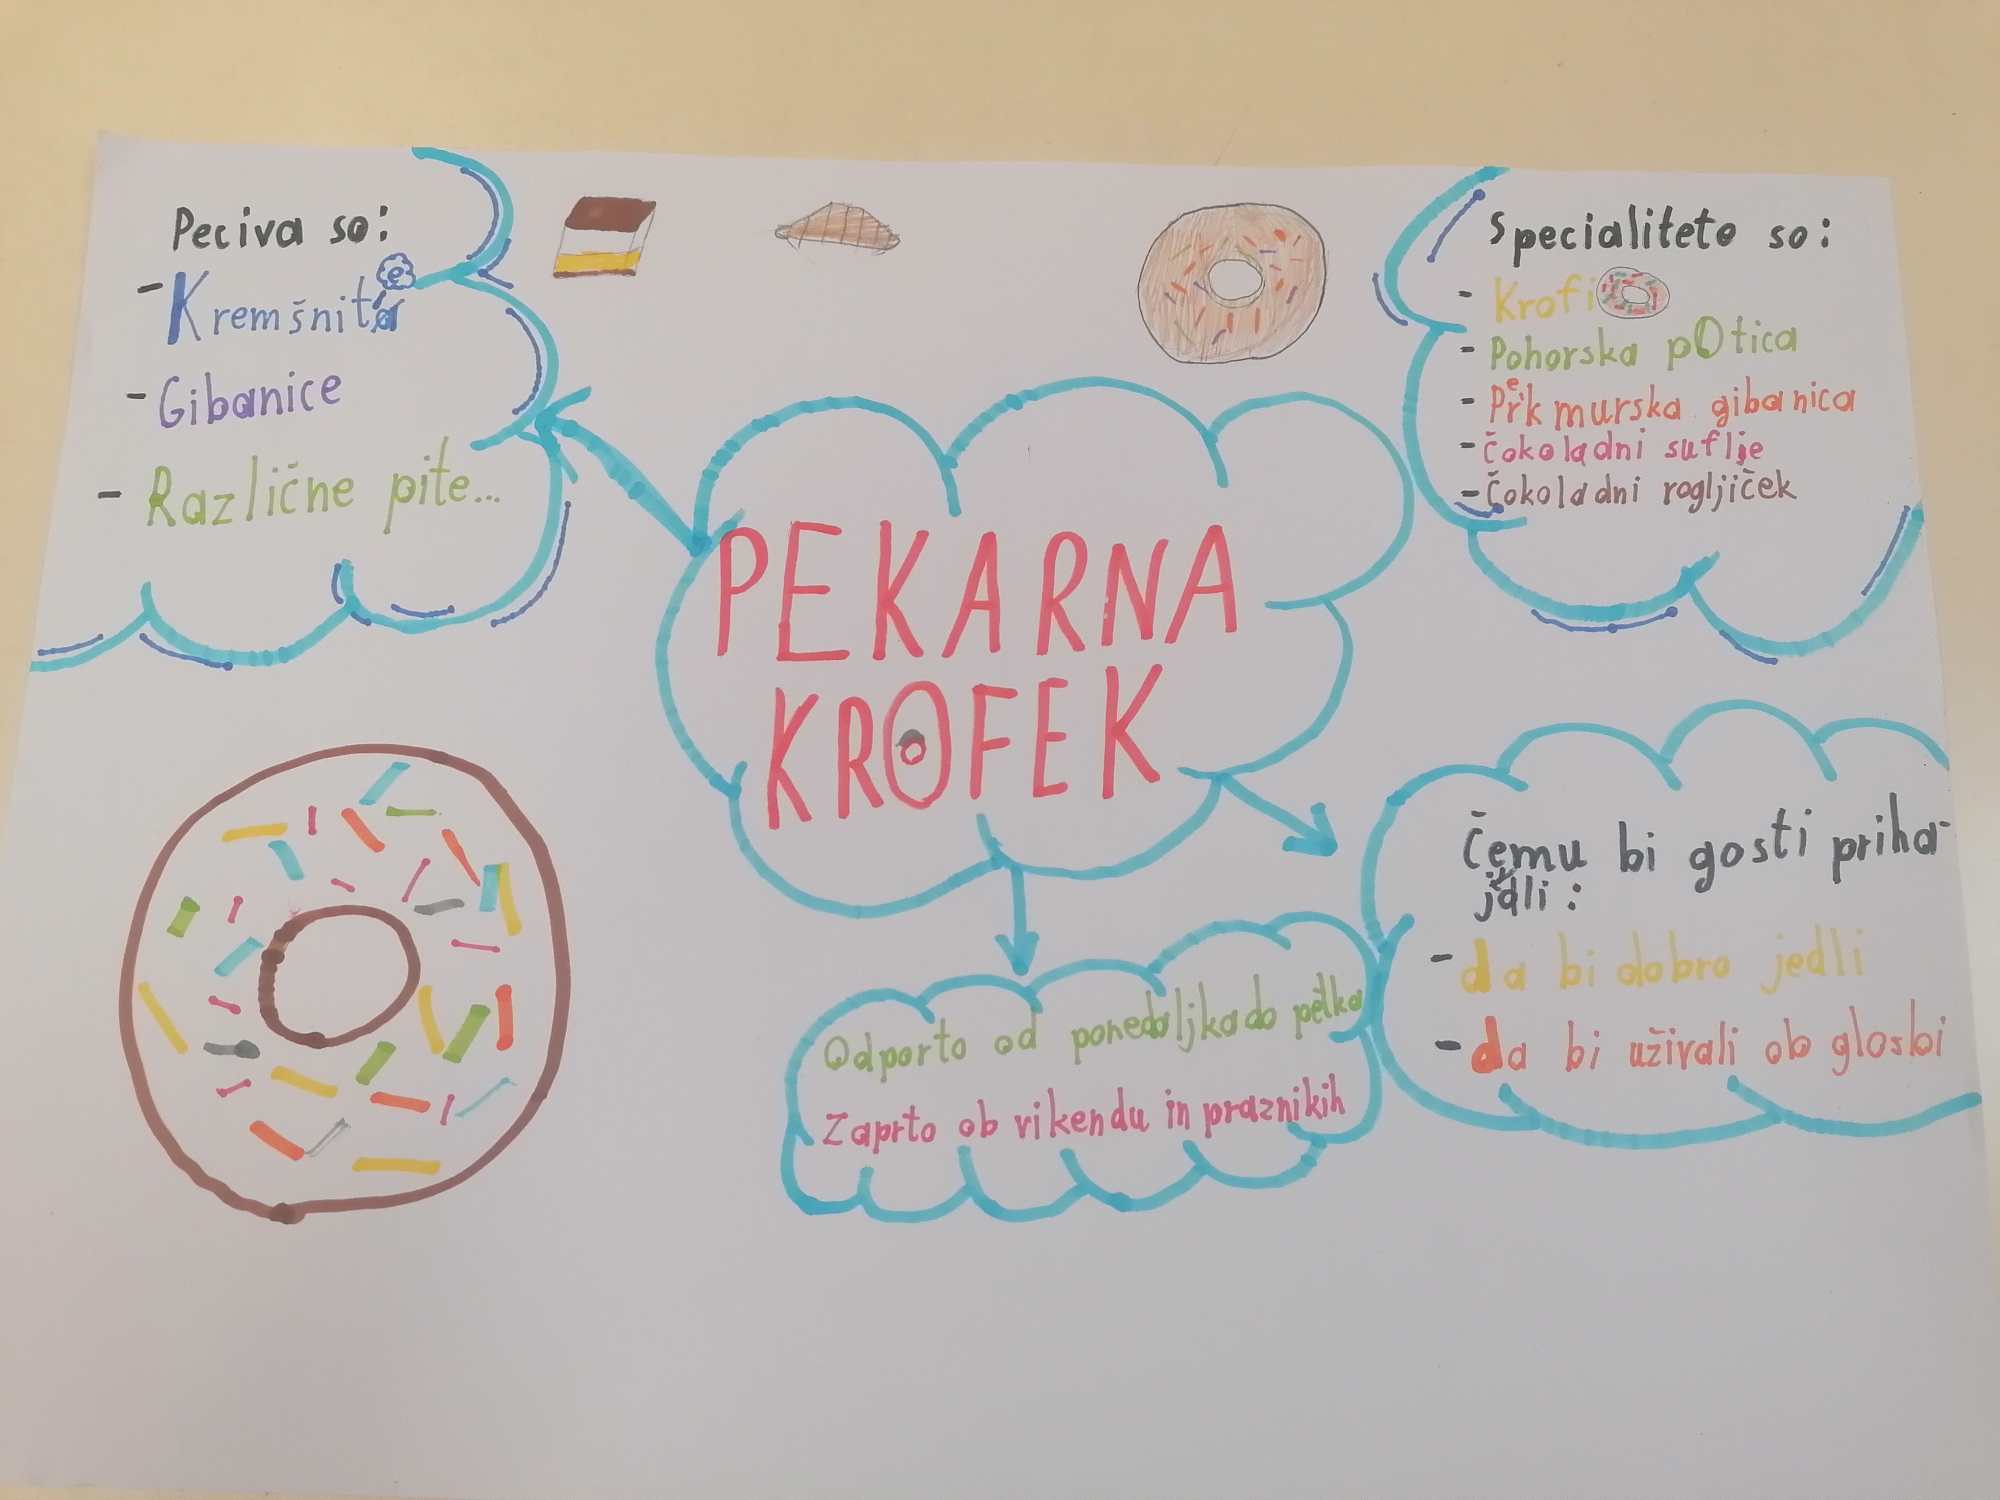 Peciva so:
- Kremšnite
- Gibanice
- Različne pite...
Specialiteto so:
- Krofi
- Pohorska pOtica
- Prekmurska gibanica
- Čokoladni suflje
- Čokoladni rogljiček
PEKARNA
KROFEK
Čemu bi gosti priha-
jali:
- da bi dobro jedli
- da bi uživali ob glosbi
Odporto od ponedaljka do petka
Zaprto ob vikendu in praznikih